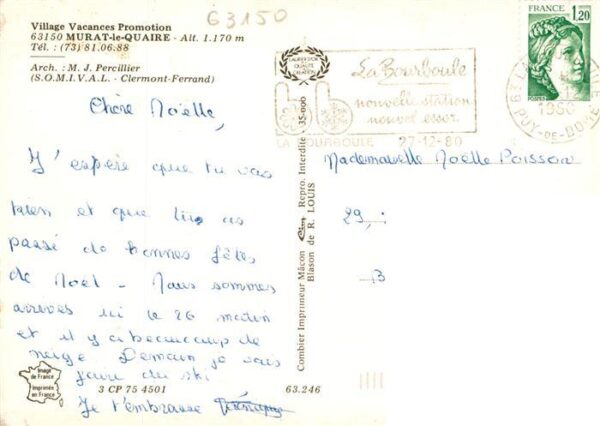 63150
Village Vacances Promotion
63150 MURAT-le-QUAIRE - Alt. 1.170 m
Tél. : (73) 81.06.88
Arch. : M. J. Percillier
(S.O.M.I.V.A.L. - Clermont-Ferrand)
Chère Noëlle,
J'espère que tu vas
bien et que tu as
passé de bonnes fêtes
de Noël - Nous sommes
arrivés ici le 26 matin
et il y a beaucoup de
neige Demain je vais
faire du ski
Je t'embrasse
Image de France
Imprimée en France
3 CP 75 4501
63.246
Combier Imprimeur Mâcon Cim Repro. Interdite - 35-000
Blason de R. LOUIS
La Bourboule
nouvelle station
nouvel essor
LA BOURBOULE 27-12-80
1980
PUY-DE-DOME
FRANCE
1,20
POSTES
Mademoiselle Noëlle Poisson
29,